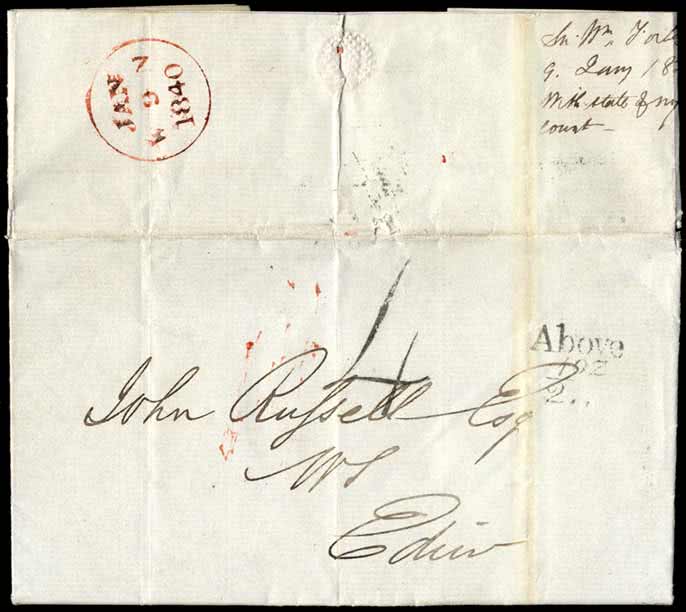 JAN
9
1840
Sir Wm Forb
9. Jany 18
With state of my
count
4
Above
1oz
2..
John Russell Esq
WS
Edinr